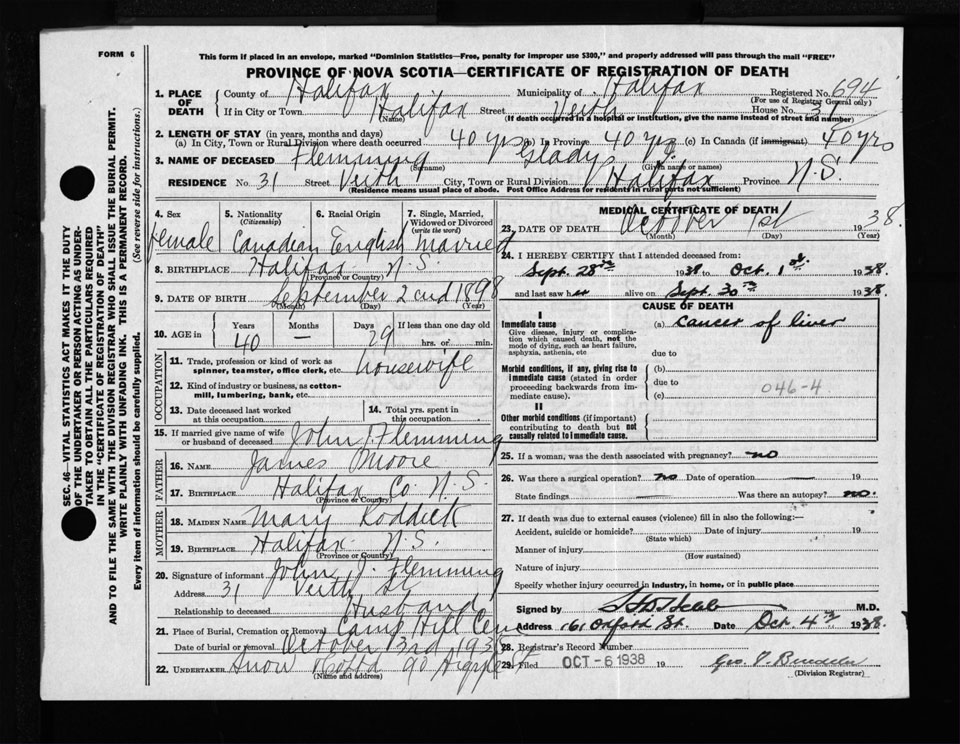 FORM 6
This form if placed in an envelope, marked "Dominion Statistics—Free, penalty for improper use $300," and properly addressed will pass through the mail "FREE"
PROVINCE OF NOVA SCOTIA—CERTIFICATE OF REGISTRATION OF DEATH
1. PLACE OF DEATH County of Halifax Municipality of Halifax Registered No. 694
(For use of Registrar General only)
If in City or Town Halifax Street Veith House No. 31
(Name) (If death occurred in a hospital or institution, give the name instead of street and number)
2. LENGTH OF STAY (in years, months and days)
(a) In City, Town or Rural Division where death occurred 40 yrs (b) In Province 40 yrs (c) In Canada (if immigrant) 40 yrs
3. NAME OF DECEASED Flemming Glady J.
(Surname) (Given name or names)
RESIDENCE No. 31 Street Veith City, Town or Rural Division Halifax Province N.S.
(Residence means usual place of abode. Post Office Address for residents in rural parts not sufficient)
4. Sex 5. Nationality 6. Racial Origin 7. Single, Married, Widowed or Divorced
(Citizenship) (write the word)
female Canadian English Married
8. BIRTHPLACE Halifax N.S.
(Province or Country)
9. DATE OF BIRTH September 2nd 1898
(Month) (Day) (Year)
10. AGE in Years Months Days If less than one day old
40 — 29 hrs. or min.
OCCUPATION
11. Trade, profession or kind of work as spinner, teamster, office clerk, etc. housewife
12. Kind of industry or business, as cotton-mill, lumbering, bank, etc.
13. Date deceased last worked at this occupation
14. Total yrs. spent in this occupation
15. If married give name of wife or husband of deceased John J. Flemming
FATHER
16. NAME James Moore
17. BIRTHPLACE Halifax Co N.S.
(Province or Country)
MOTHER
18. MAIDEN NAME Mary Roddick
19. BIRTHPLACE Halifax N.S.
(Province or Country)
20. Signature of informant John J. Flemming
Address 31 Veith St
Relationship to deceased Husband
21. Place of Burial, Cremation or Removal Camp Hill Cem
Date of burial or removal October 3rd 1938
22. UNDERTAKER Snow 90 Argyle
(Name and address)
MEDICAL CERTIFICATE OF DEATH
23. DATE OF DEATH October 1st 1938
(Month) (Day) (Year)
24. I HEREBY CERTIFY that I attended deceased from:
Sept. 28 1938 to Oct. 1st 1938.
and last saw her alive on Sept. 30th 1938.
CAUSE OF DEATH
I
Immediate cause (a) Cancer of liver
Give disease, injury or complication which caused death, not the mode of dying, such as heart failure, asphyxia, asthenia, etc
due to
Morbid conditions, if any, giving rise to immediate cause (stated in order proceeding backwards from immediate cause).
(b)
due to 046-4
(c)
II
Other morbid conditions (if important) contributing to death but not causally related to immediate cause.
25. If a woman, was the death associated with pregnancy? no
26. Was there a surgical operation? no Date of operation — 19
State findings Was there an autopsy? no.
27. If death was due to external causes (violence) fill in also the following:—
Accident, suicide or homicide? Date of injury 19
(State which)
Manner of injury
(How sustained)
Nature of injury
Specify whether injury occurred in industry, in home, or in public place
Signed by M.D.
Address 161 Oxford St. Date Oct. 4th 1938.
28. Registrar's Record Number
29. Filed OCT - 6 1938 19
(Division Registrar)
SEC. 46—VITAL STATISTICS ACT MAKES IT THE DUTY
OF THE UNDERTAKER OR PERSON ACTING AS UNDER-
TAKER TO OBTAIN ALL THE PARTICULARS REQUIRED
IN THE "CERTIFICATE OF REGISTRATION OF DEATH"
AND TO FILE THE SAME WITH THE DIVISION REGISTRAR WHO SHALL ISSUE THE BURIAL PERMIT.
WRITE PLAINLY WITH UNFADING INK. THIS IS A PERMANENT RECORD.
Every item of information should be carefully supplied. (See reverse side for instructions.)